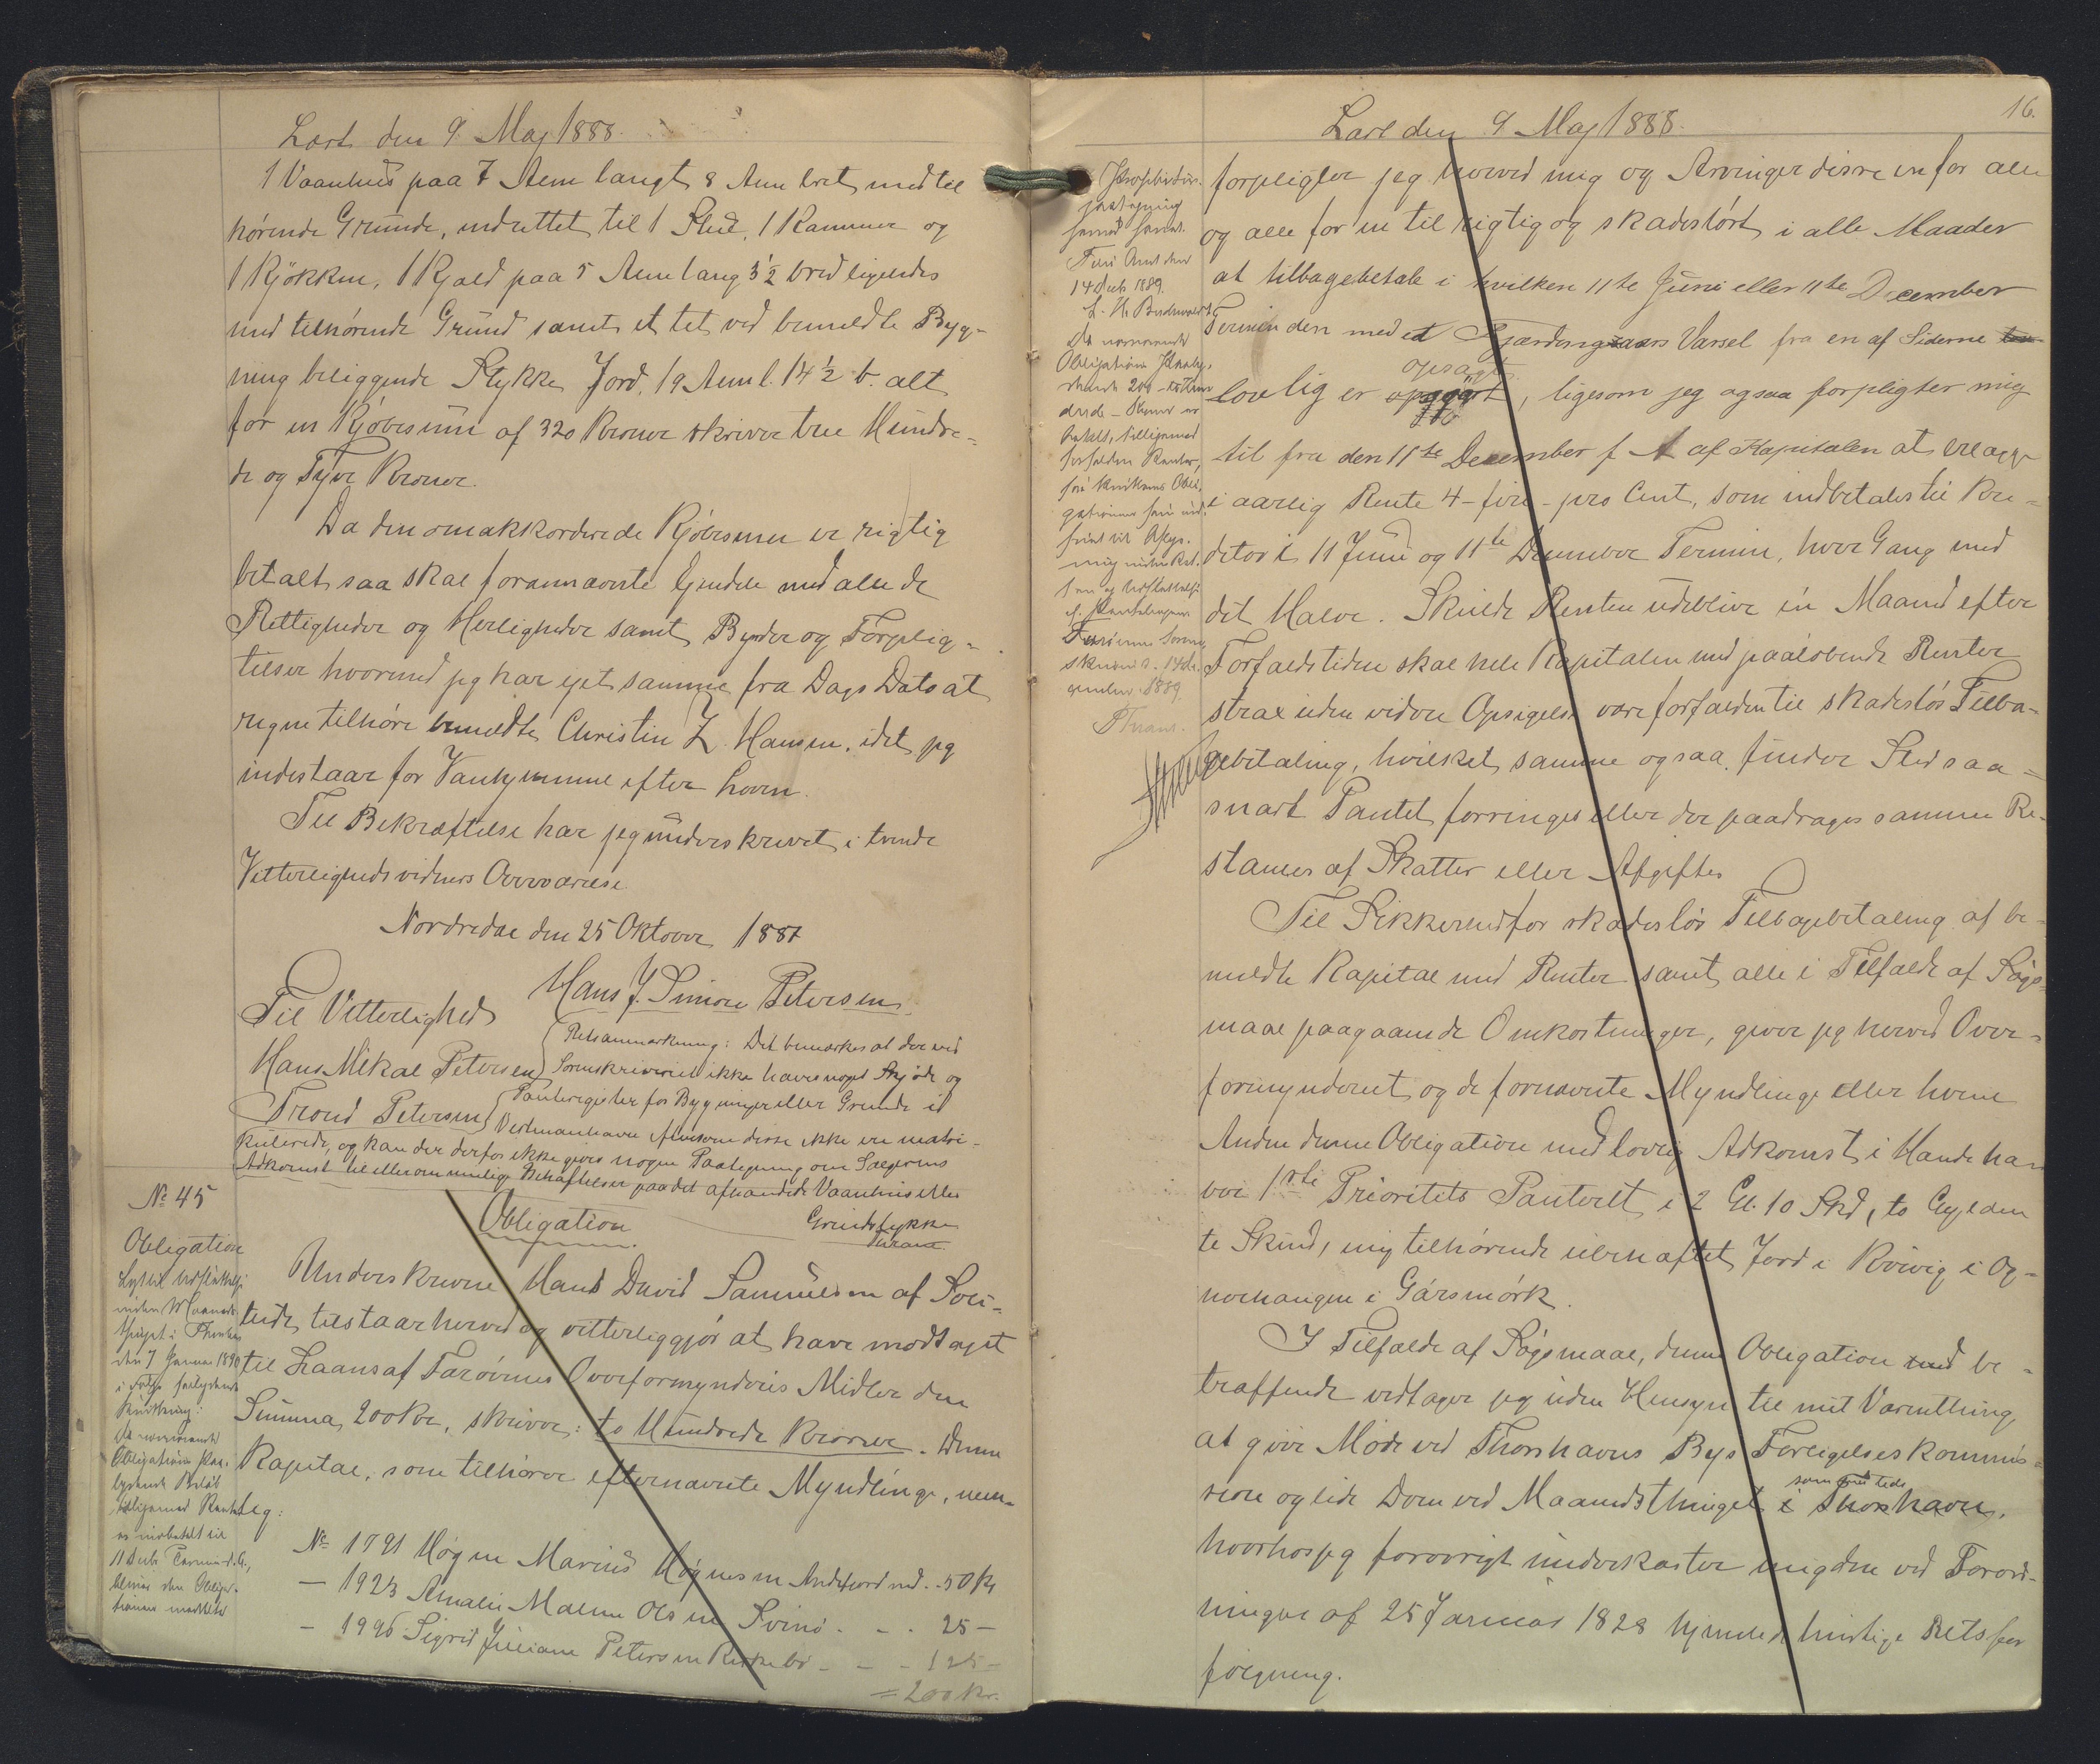 Læst den 9. Maj 1888.
1 Vaanhus paa 7 Alem langt 8 Alem bret med til
hørende Grunde, indrettet til 1 Stue, 1 Kammer og
1 Kjøkken, 1 Kjald paa 5 Alem lang 3½ bred ligeledes
med tilhørende Grund samt et tet ved bemeldte Byg-
ning beliggende Stykke Jord, 19 Alem l. 14½ b. alt
for en Kjøbesum af 320 Kroner skriver tre Hundre-
de og Tyve Kroner.
Da den omakkorderede Kjøbesum er rigtig
betalt saa skal forannævnte Ejendele med alle de
Rettigheder og Herligheder samt Byrder og Forplig-
telser hvormed jeg har ejet samme fra Dags Dato at
regne tilhøre bemeldte Christin Z. Hansen, idet jeg
indestaar for Vanhjemmel efter Loven.
Til Bekræftelse har jeg underskrevet i tvende
Vitterlighedsvidners Overværelse.
Nordredal den 25 Oktober 1887
Hans J. Simon Petersen
Til Vitterlighed
Hans Mikal Petersen
Trond Petersen
Retsanmærkning: Det bemærkes at der ved
Sorenskriveriet ikke haves noget Skjøde og
Panteregister for Bygninger eller Grunde i
Vestmanhavn eftersom disse ikke ere matri-
kulerede, og kan der derfor ikke gives nogen Paategning om Sælgerens
Adkomst til eller om mulige Behæftelser paa det afhændede Vaanhus eller
Grundstykke
Thrane
No 45
Obligation
Lyst til Udslettelse
inden Maaneds
thinget i Thorshavn
den 7 Januar 1890
i Følge saalydende
Kvittering:
Da nærværende
Obligations paa-
lydende Beløb
tilligemed Renter
er indbetalt til
11 Decb Termin d.A.,
bliver den Obliga-
tionen meddelt
Obligation.
Underskrevne Hans David Samuelsen af Sel-
tuds tilstaar herved og vitterliggjør at have modtaget
til Laans af Færøernes Overformynderis Midler den
Summa, 200 Kr, skriver: to Hundrede Kroner. Denne
Kapital, som tilhører efternævnte Myndlinge, nem-
lig:
No 1791 Høgne Marius Høgnesen Andefjord med. 50 Kr
— 1923 Amalie Malene Olsen Svinø . - . 25 —
— 1996 Sigrid Juliane Petersen Kirkebø - - - 125 —
= 200 Kr.
16.
Læst den 9 Maj 1888.
forpligter jeg herved mig og Arvinger disse en for alle
og alle for en til rigtig og skadesløst i alle Maader
at tilbagebetale i hvilken 11te Juni eller 11te December
Termin den med et Fjærdingaars Varsel fra en af Siderne
lovlig er opgjørt opsagt, ligesom jeg ogsaa forpligter mig
til fra den 11te December f A af Kapitalen at erlægge
i aarlig Rente 4 - fire - pro Cent, som indbetales til Kre-
ditor i 11 Juni og 11te December Termin, hver Gang med
det Halve. Skulde Renten udeblive en Maaned efter
Forfaldstiden skal hele Kapitalen med paaløbende Renter
strax uden videre Opsigelse være forfalden til skadesløs Tilba-
gebetaling, hvilket samme ogsaa finder Sted saa-
snart Pantet forringes eller der paadrages samme Re-
stancer af Skatter eller Afgifter
Til Sikkerhed for skadesløs Tilbagebetaling af be-
meldte Kapital med Renter samt alle i Tilfælde af Søgs-
maal paagaaende Omkostninger, giver jeg herved Over-
formynderiet og de fornævnte Myndlinge eller hvem
Anden denne Obligation med lovlig Adkomst i Hænde ha-
ver 1ste Prioritets Panteret i 2 Gl. 10 Skd, to Gylden
te Skind, mig tilhørende ubehæftet Jord i Kvivig i Op-
nørhaugen i Gársmörk.
I Tilfælde af Søgsmaal, denne Obligation be-
træffende vedtager jeg uden Hensyn til mit Værnething,
at give Møde ved Thorshavns Bys Forligelseskommis-
sion og lide Dom ved Maanedsthinget i Thorshavn,
hvorhos jeg forøvrigt underkaster mig den ved Forord-
ningen af 25 Januar 1828 hjemlede hurtige Retsfor
følgning.
14 Decb 1889.
Obligations Paaly-
dende 200 - to Hun
drede - Kroner er
betalt, tilligemed
forfaldne Renter,
Færøernes Soren-
skriveri d. 14 De-
cember 1889
Thrane.